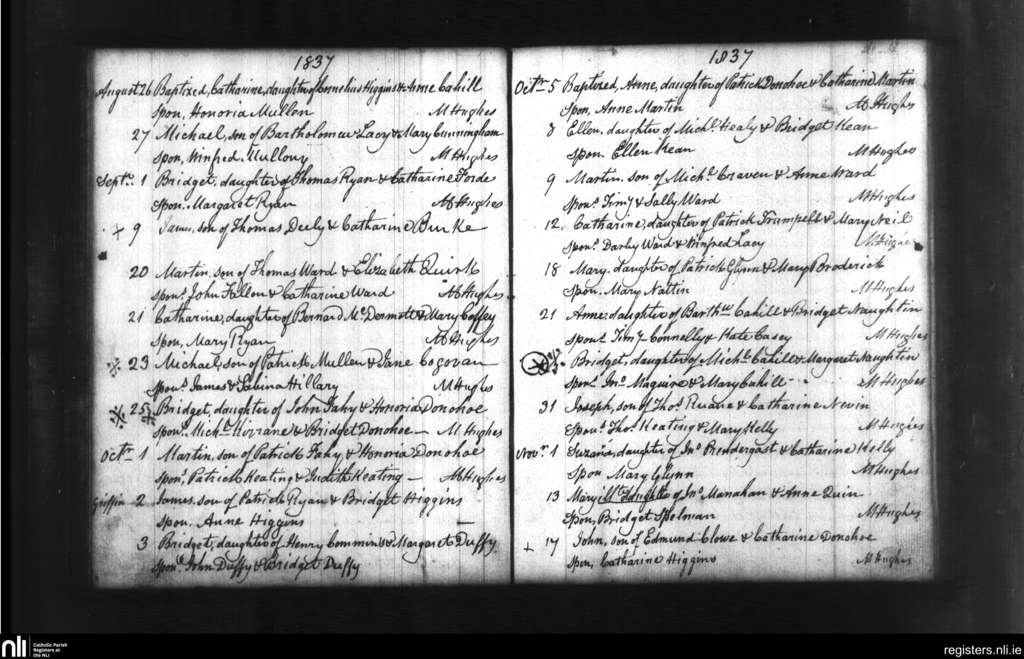 1837
August 26 Baptized, Catharine, daughter of Cornelius Higgins & Anne Cahill
Spon, Honoria Mullen M Hughes
27 Michael, son of Bartholomew Lacy & Mary Cunningham
Spon, Winfred Mullowy M Hughes
Septr. 1 Bridget, daughter of Thomas Ryan & Catharine Forde
Spon. Margaret Ryan M Hughes
+ 9 James, son of Thomas Deely & Catharine Burke
20 Martin, son of Thomas Ward & Elizabeth Quirk
Spons. John Fallon & Catharine Ward M Hughes
21 Catharine, daughter of Bernard McDermott & Mary Coffey
Spon, Mary Ryan M Hughes
23 Michael, son of Patrick Mullen & Jane
Spons. James & Sabina Hillary M Hughes
25 Bridget, daughter of John Fahy & Honoria Donohoe
Spons. Michl. & Bridget Donohoe — M Hughes
Octr. 1 Martin, son of Patrick Fahy, & Honoria Donohoe
Spons. Patrick Keating & Judith Keating — M Hughes
Griffin 2 James, son of Patrick Ryan & Bridget Higgins
Spon. Anne Higgins —
3 Bridget, daughter of Henry Commins & Margaret Duffy
Spons. John Duffy & Bridget Duffy
1837
Octr. 5 Baptized, Anne, daughter of Patrick Donohoe & Catharine Martin
Spon, Anne Martin M Hughes
8 Ellen, daughter of Michl. Healy & Bridget Kean
Spon. Ellen Kean M Hughes
9 Martin, son of Michl. Craven & Anne Ward
Spons. Timy & Sally Ward M Hughes
12, Catharine, daughter of Patrick Trumpell & Mary Neil
Spons. Darby Ward & Winfred Lacy M Hughes
18 Mary, daughter of Patrick Glynn & Mary Broderick
Spon. Mary Nattin M Hughes
21 Anne, daughter of Barthw. Cahill & Bridget Naughtin
Spons. Timy Connelly & Kate Casey M Hughes
Bridget, daughter of Michl. Cahill & Margaret Naughtin
Spons. Jno. Maguire & Mary Cahill M Hughes
31 Joseph, son of Thos. Ruane & Catharine Nevin
Spons. Thos. Keating & Mary Kelly M Hughes
Novr. 1 Suzana, daughter of Jno. Prendergast & Catharine Kelly
Spon Mary Glynn M Hughes
13 Mary illt. daughter of Jno. Manahan & Anne Quin
Spon, Bridget Spelman M Hughes
+ 17 John, son of Edmund Clowe & Catharine Donohoe
Spon, Catharine Higgins M Hughes
nli Catholic Parish
Registers at
the NLI
registers.nli.ie